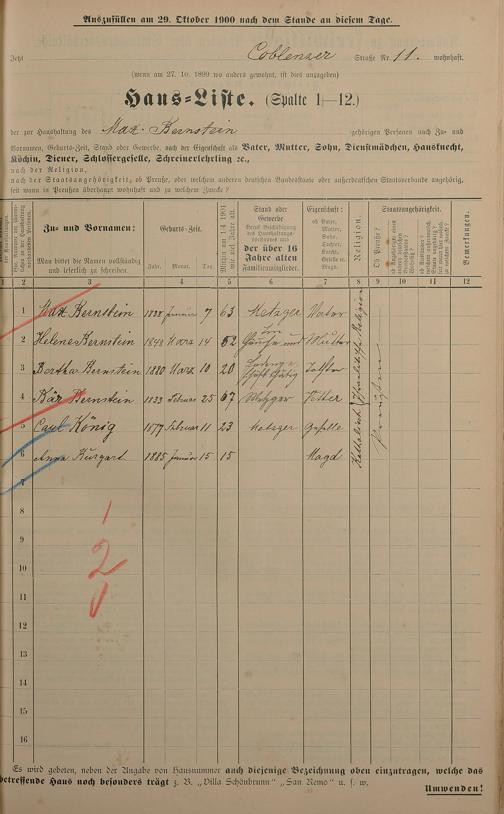 Auszufüllen am 29. Oktober 1900 nach dem Stande an diesem Tage.
Jetzt Coblenzer Straße Nr. 11. wohnhaft.
(wenn am 27. 10. 1899 wo anders gewohnt, ist dies anzugeben)
Haus-Liste. (Spalte 1—12.)
der zur Haushaltung des Max Bernstein gehörigen Personen nach Zu- und
Vornamen, Geburts-Zeit, Stand oder Gewerbe, auch der Eigenschaft als Vater, Mutter, Sohn, Dienstmädchen, Hausknecht,
Köchin, Diener, Schlossergeselle, Schreinerlehrling ec.,
nach der Religion,
nach der Staatsangehörigkeit, ob Preuße, oder welchem anderen deutschen Bundesstaate oder außerdeutschen Staatsverbande angehörig,
seit wann in Preußen überhaupt wohnhaft und zu welchem Zwecke?
Zu- und Vornamen:
Man bittet die Namen vollständig
und leserlich zu schreiben.
Geburts-Zeit.
Jahr. Monat. Tag
Mithin am 1/4 1901
wie viel Jahre alt.
Stand oder
Gewerbe
der über 16
Jahre alten
Familienmitglieder.
Eigenschaft:
ob Vater,
Mutter,
Sohn,
Tochter,
Knecht,
Geselle
Religion.
Staatsangehörigkeit.
Ob Preuße?
Bemerkungen.
1 2 3 4 5 6 7 8 9 10 11 12
1 Max Bernstein 1838 Januar 7 63 Metzger Vater
2 Helene Bernstein 1848 März 14 52 Mutter
3 Bertha Bernstein 1880 März 10 20 Tochter
4 Bär Bernstein 1833 Februar 25 67 Metzger Vetter
5 Carl König 1877 Februar 11 23 Metzger Geselle
6 Anna Kurgart 1885 Januar 15 15 Magd
Israelitische Religion
Katholisch
Preußen
7
8
9
10
11
12
13
14
15
16
Es wird gebeten, neben der Angabe von Hausnummer auch diejenige Bezeichnung oben einzutragen, welche das
betreffende Haus noch besonders trägt z. B. „Villa Schönbrunn" „San Remo" u. s. w.
Umwenden!